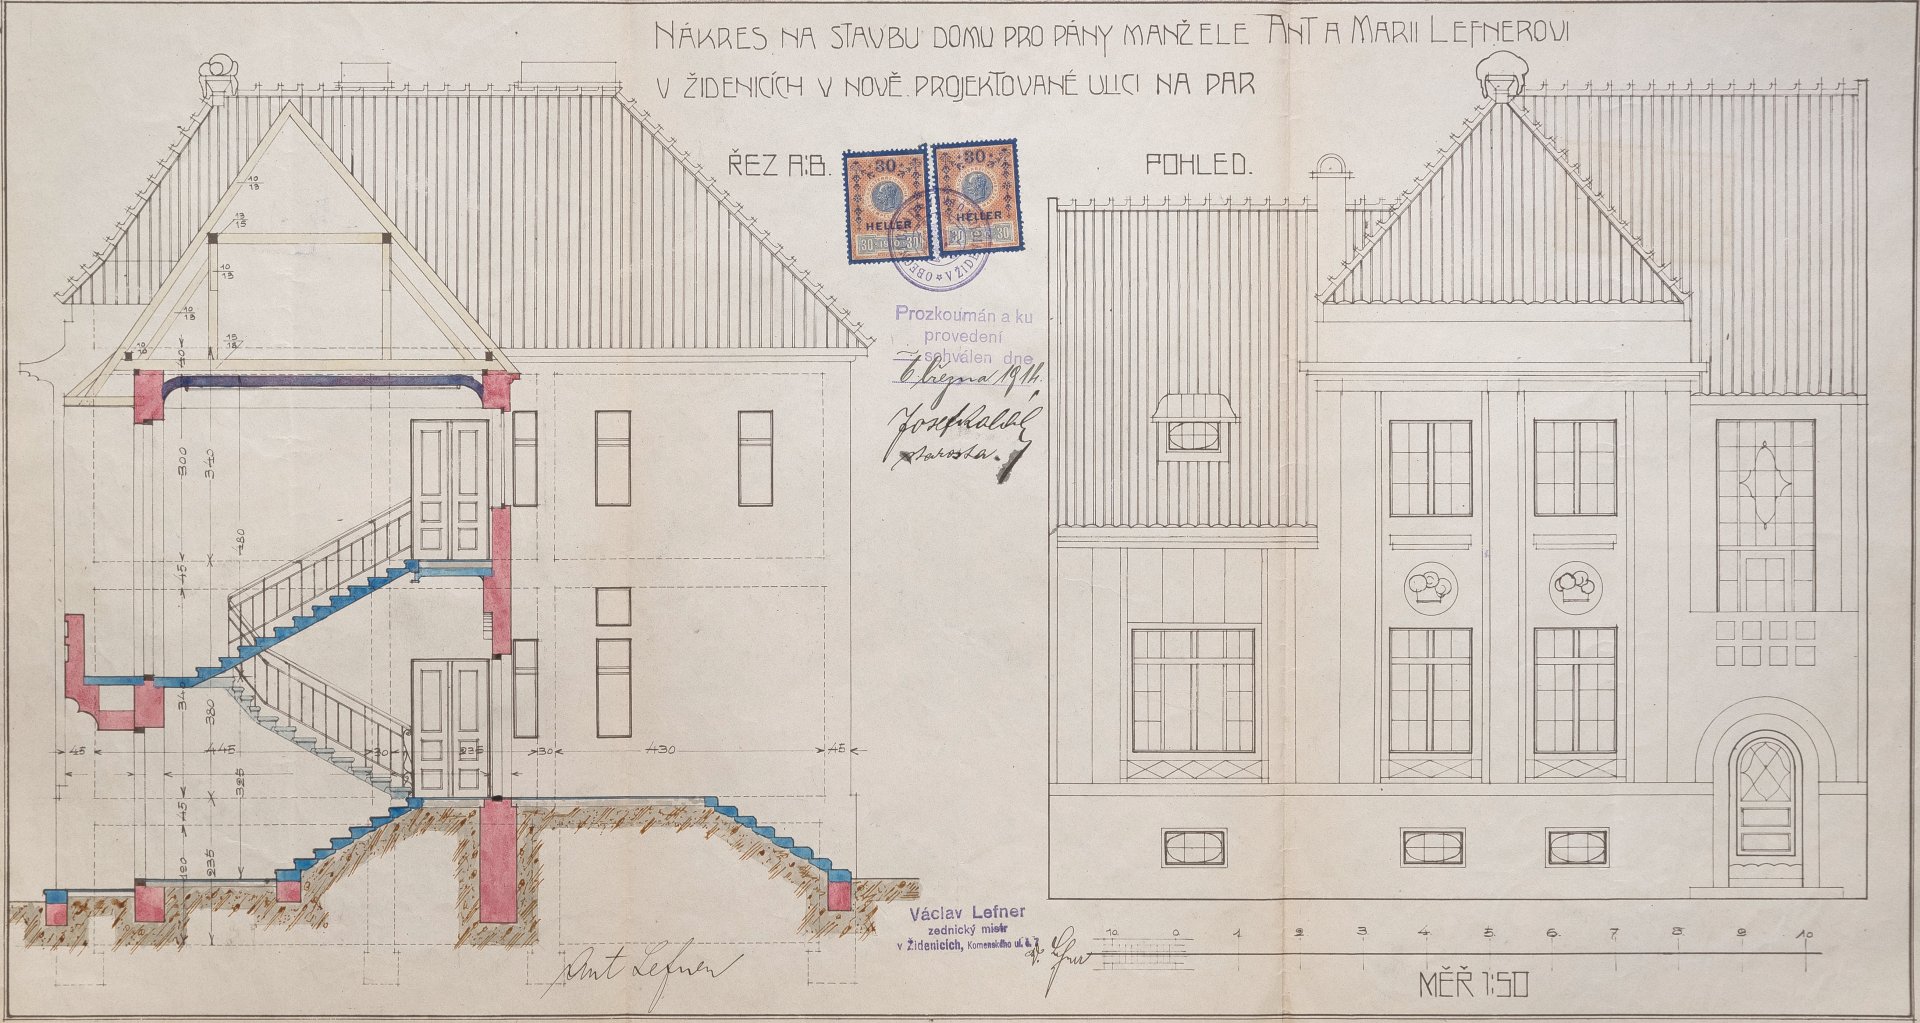 NÁKRES NA STAVBU DOMU PRO PÁNY MANŽELE ANT A MARII LEFNEROVI
V ŽIDENICÍCH V NOVĚ PROJEKTOVANÉ ULICI NA PAR
ŘEZ A:B.
POHLED.
30 30
HELLER HELLER
30 1910 30 30 30
OBEC * V ŽIDE
Prozkoumán a ku
provedení
schválen dne
6. března 1914.
Josef
starosta.
10/13
13/15
10/13
10/13
15/18
10/10
40
300 340
480
45
340 380
45 445 30 235 30 430 45
325
45
180 235
Václav Lefner
zednický mistr
v Židenicích, Komenského ul. č. 7
V. Lefner
Ant Lefner
10 0 1 2 3 4. 5. 6. 7 8 9 10
MĚŘ 1:50